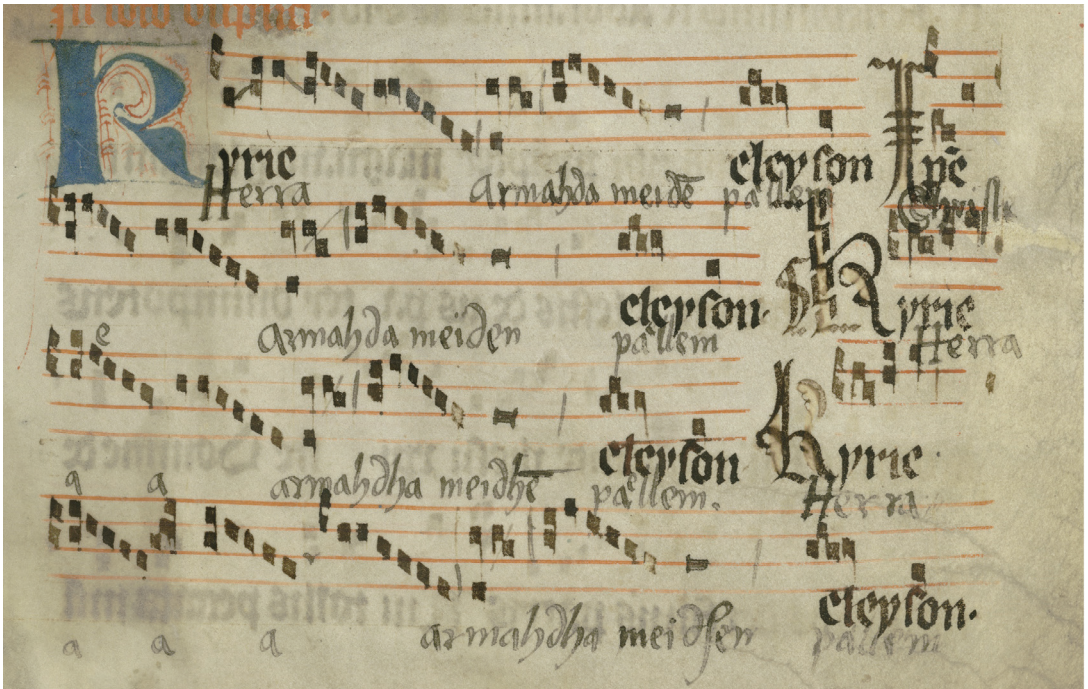 Kyrie eleyson xpē
Herra Armahda meidē pällem Christe
eleyson. Kyrie
Armahda meiden pällem Herra
e
eleyson Kyrie.
a a armahdha meidhē pällem. Herra
eleyson.
a a a armahdha meidhen pällem